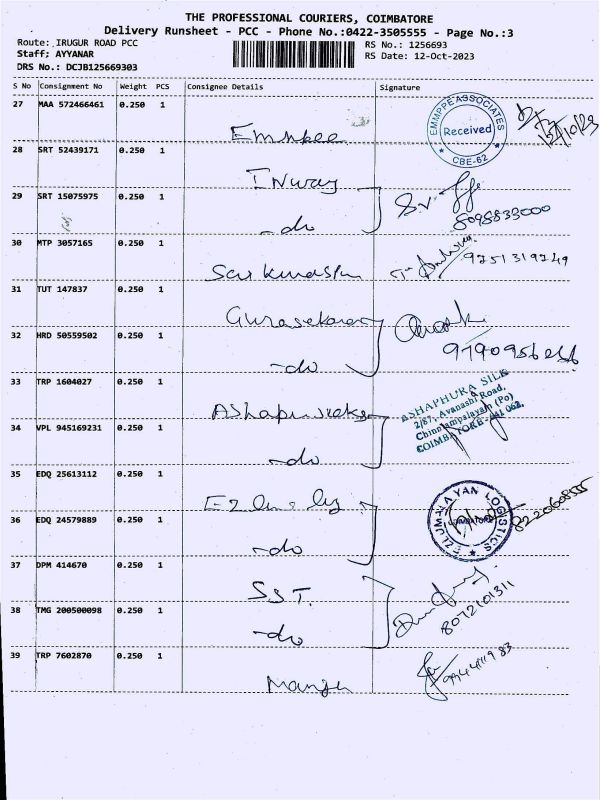 THE PROFESSIONAL COURIERS, COIMBATORE
Delivery Runsheet - PCC - Phone No.:0422-3505555 - Page No.:3
Route: IRUGUR ROAD PCC RS No.: 1256693
Staff; AYYANAR RS Date: 12-Oct-2023
DRS No.: DCJB125669303
S No Consignment No Weight PCS Consignee Details Signature
27 MAA 572466461 0.250 1
EMMPPE ASSOCIATES
Received
CBE-62
12/10/23
Emmpee
28 SRT 52439171 0.250 1
Inway
29 SRT 15075975 0.250 1
-do
30 MTP 3057165 0.250 1
9251319249
31 TUT 147837 0.250 1
Gunasekaran
32 HRD 50559502 0.250 1
-do
33 TRP 1604027 0.250 1
ASHAPHURA SILK
2/87, Avanashi Road,
Chinniampalayam (Po)
COIMBATORE-641 062.
34 VPL 945169231 0.250 1
-do
35 EDQ 25613112 0.250 1
EZLUMALAYAN LOGISTICS
COIMBATORE
36 EDQ 24579889 0.250 1
-do
37 DPM 414670 0.250 1
S.S.T.
8072101311
38 TMG 200500098 0.250 1
-do
39 TRP 7602870 0.250 1
Manju